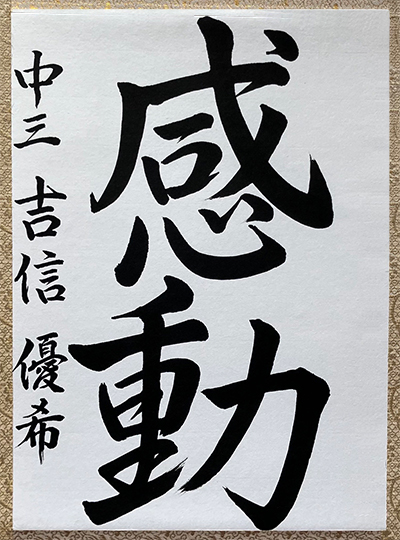 感動
中三 吉信 優希